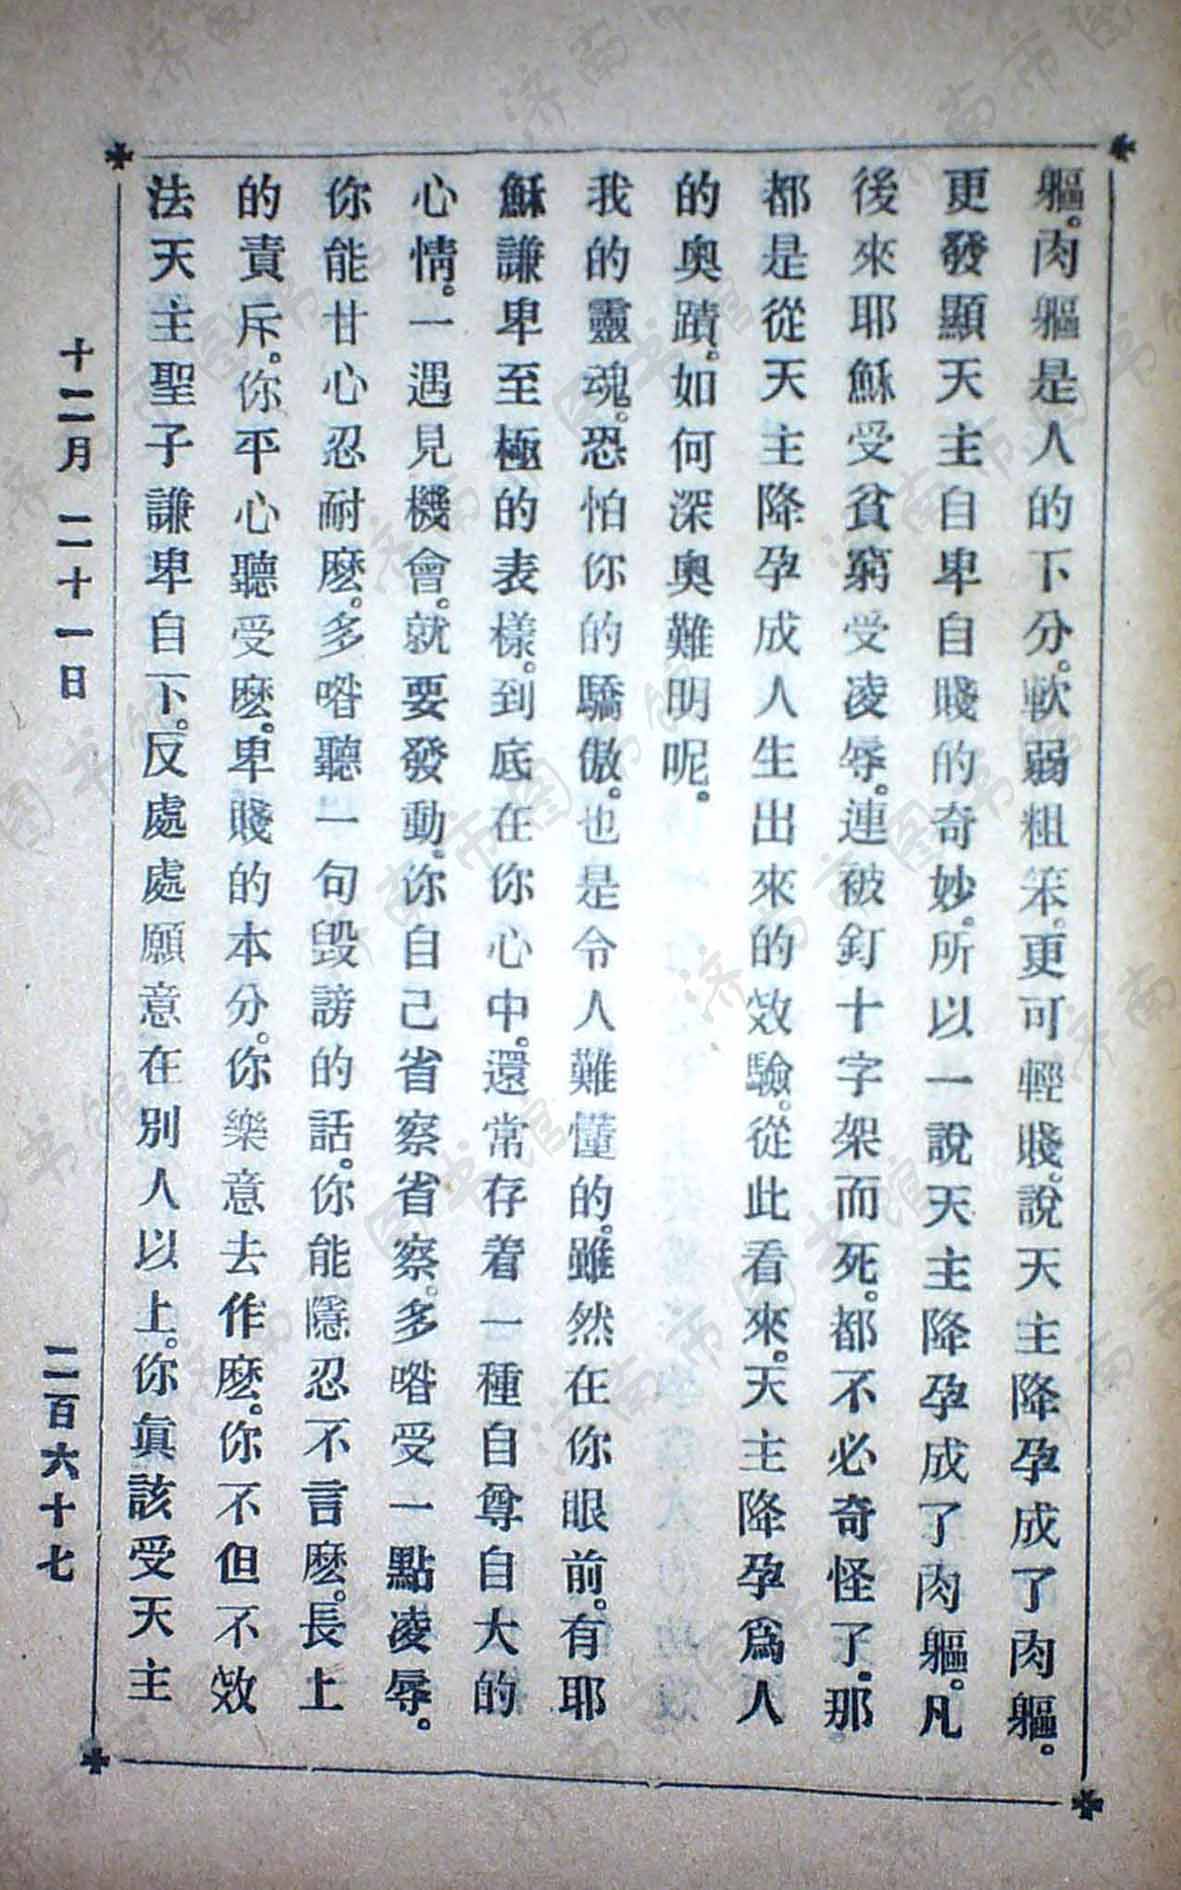 軀。肉軀是人的下分。軟弱粗笨。更可輕賤。說天主降孕成了肉軀。
更發顯天主自卑自賤的奇妙。所以一說天主降孕成了肉軀。凡
後來耶穌受貧窮受凌辱。連被釘十字架而死。都不必奇怪了。那
都是從天主降孕成人生出來的效驗。從此看來。天主降孕爲人
的奧蹟。如何深奧難明呢。
我的靈魂。恐怕你的驕傲。也是令人難懂的。雖然在你眼前。有耶
穌謙卑至極的表樣。到底在你心中。還常存着一種自尊自大的
心情。一遇見機會。就要發動。你自己省察省察。多喒受一點凌辱。
你能甘心忍耐麽。多喒聽一句毀謗的話。你能隱忍不言麽。長上
的責斥。你平心聽受麽。卑賤的本分。你樂意去作麽。你不但不效
法天主聖子謙卑自下。反處處願意在別人以上。你眞該受天主
十二月 二十一日
二百六十七
济南市图书馆